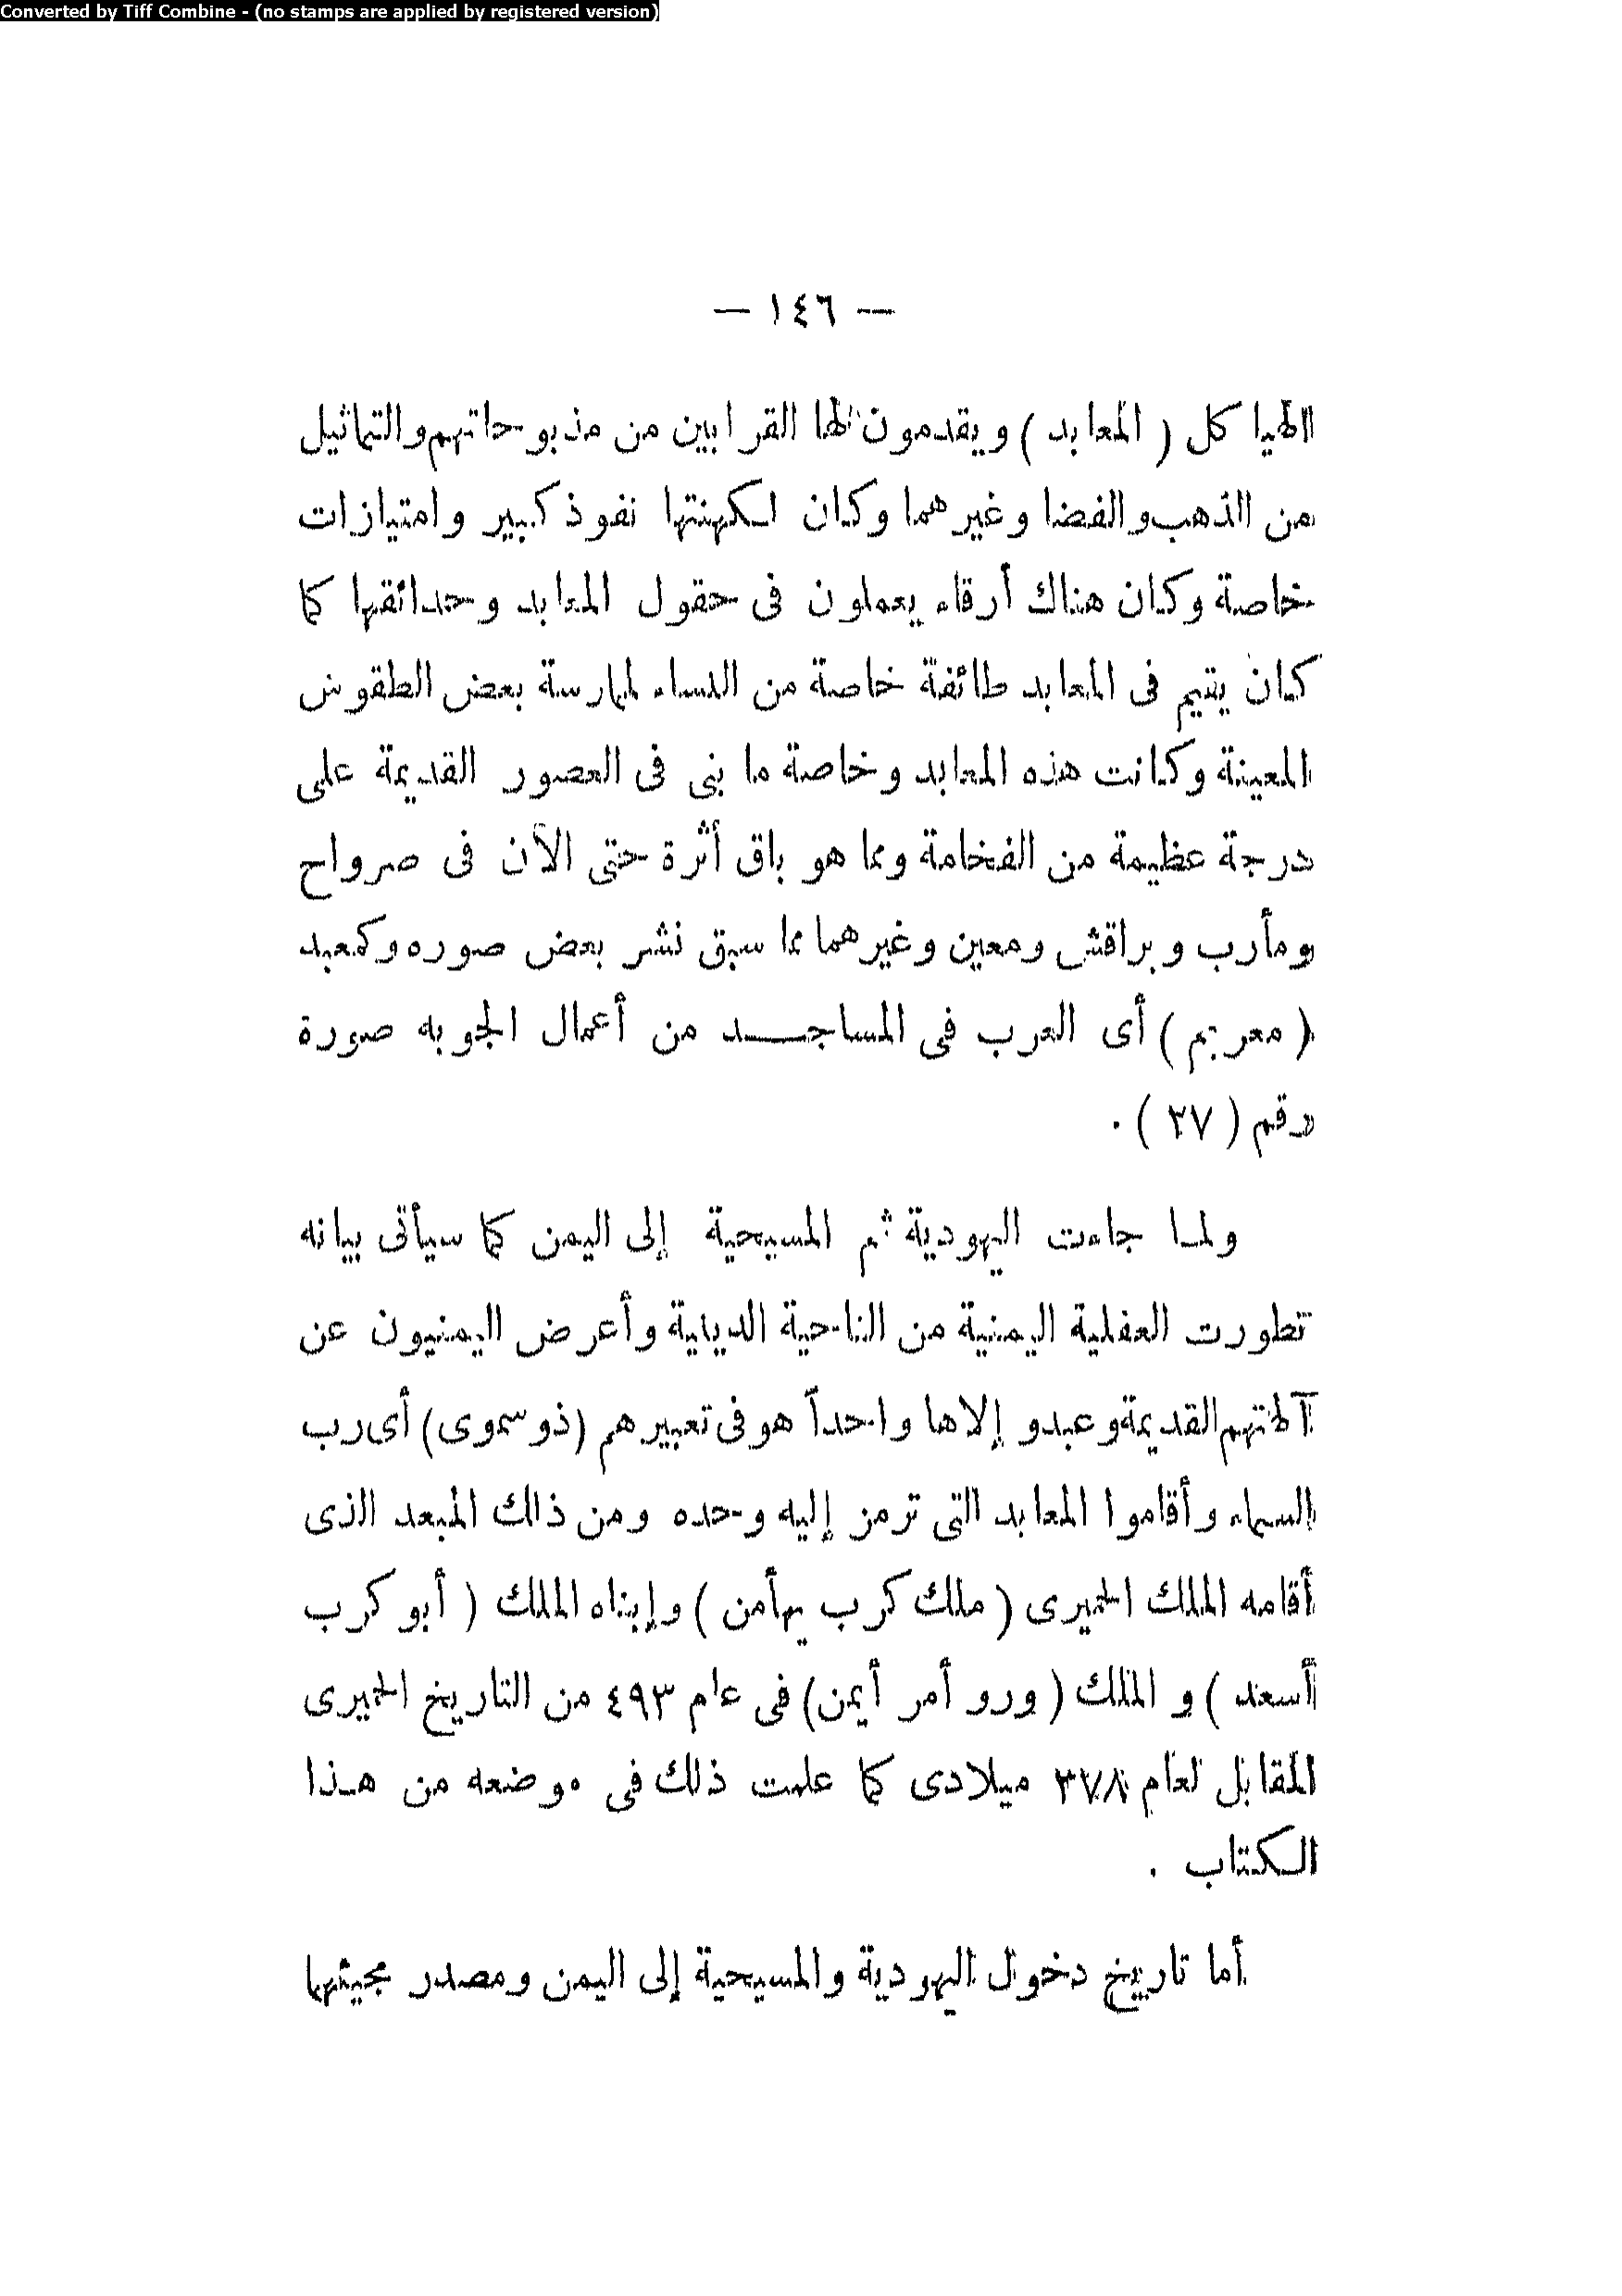 Converted by Tiff Combine - (no stamps are applied by registered version)
— ١٤٦ —
الهيا كل ( المعابد ) ويقدمون لها القرابين من مذبوحاتهم والتماثيل
من الذهب والفضا وغيرهما وكان لكهنتها نفوذ كبير وامتيازات
خاصة وكان هناك أرقاء يعملون فى حقول المعابد وحدائقها كما
كان يقيم فى المعابد طائفة خاصة من النساء لممارسة بعض الطقوس
المعينة وكانت هذه المعابد وخاصة ما بنى فى العصور القديمة على
درجة عظيمة من الفخامة ومما هو باق أثرة حتى الآن فى صرواح
ومأرب وبراقش ومعين وغيرهما مما سبق نشر بعض صوره وكمعبد
( معربم ) أى العرب فى المساجد من أعمال الجوبه صورة
رقم ( ٢٧ ) .
ولما جاءت اليهودية ثم المسيحية إلى اليمن كما سيأتى بيانه
تطورت العقلية اليمنية من الناحية الدينية وأعرض اليمنيون عن
آلهتهم القديمة وعبدو إلاها واحداً هو فى تعبيرهم (ذو سموى) أى رب
السماء وأقاموا المعابد التى ترمز إليه وحده ومن ذالك المبعد الذى
أقامه الملك الحميرى ( ملك كرب يهأمن ) وإبناه الملك ( أبو كرب
أسعد ) و الملك ( ورو أمر أيمن) فى عام ٤٩٣ من التاريخ الحميرى
المقابل لعام ٣٧٨ ميلادى كما علمت ذلك فى موضعه من هذا
الكتاب .
أما تاريخ دخول اليهودية والمسيحية إلى اليمن ومصدر مجيئهما